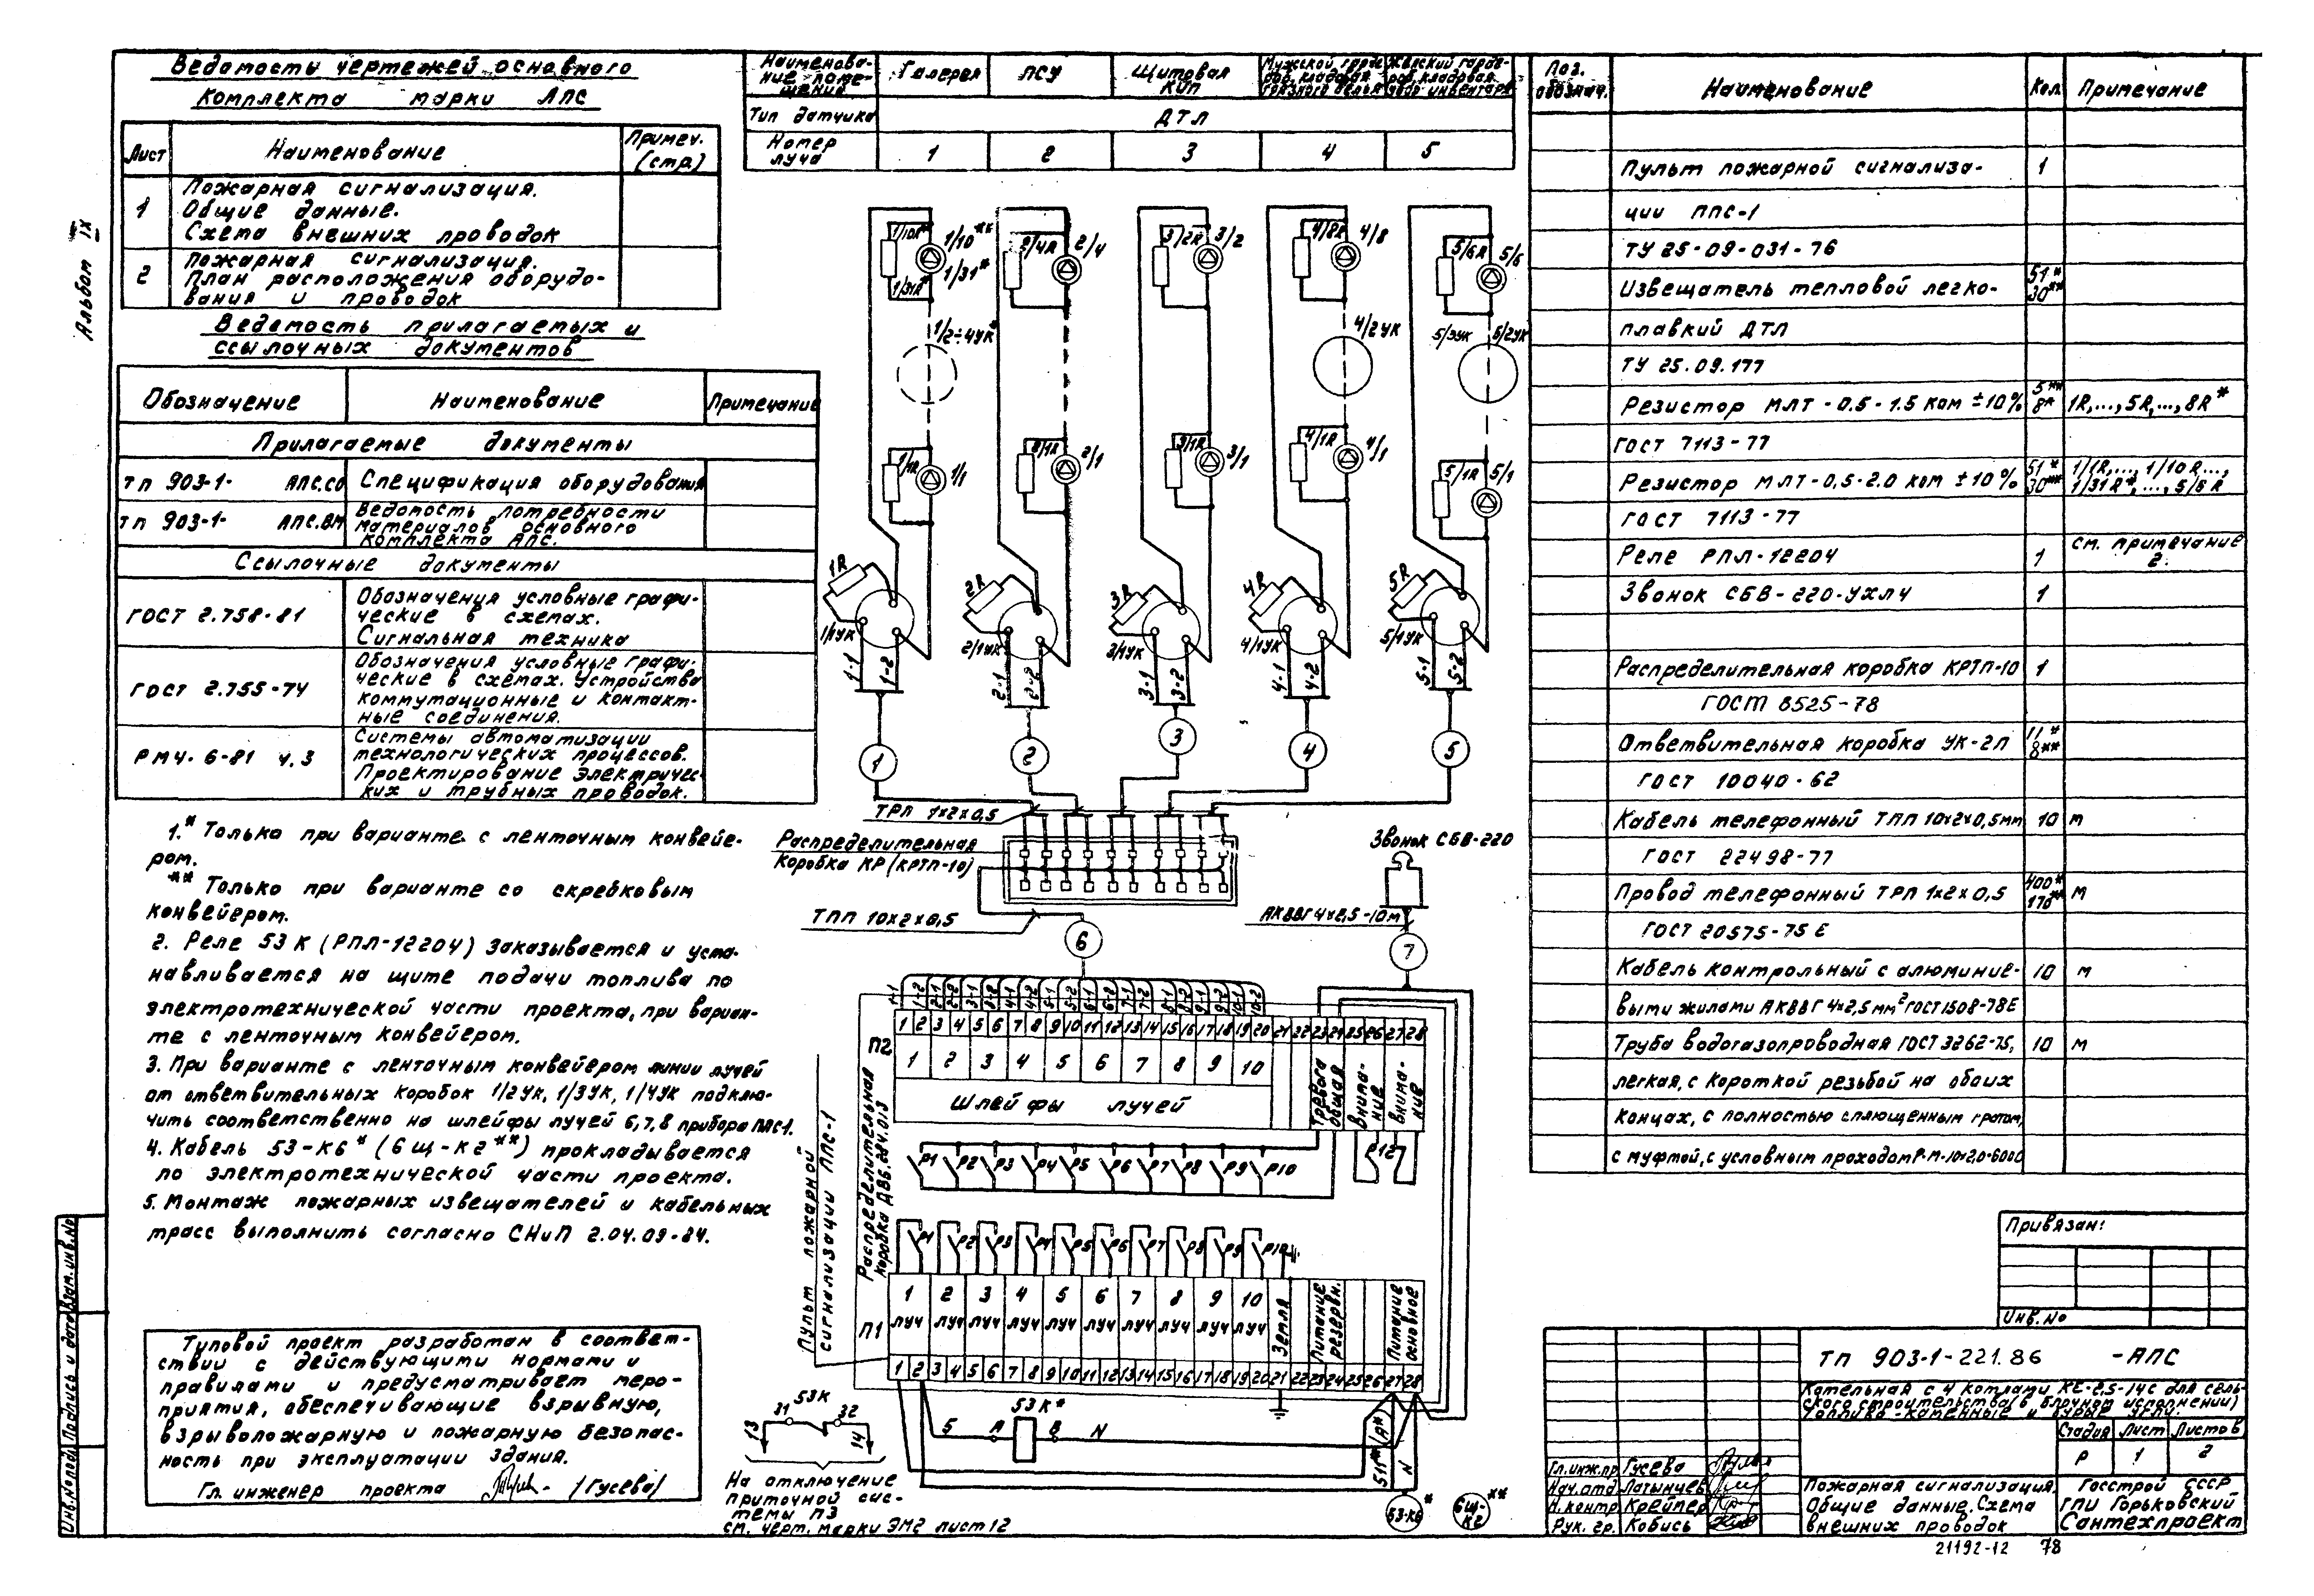 Альбом IX
Ведомость чертежей основного
комплекта марки АПС
Лист
Наименование
Примеч. (стр.)
1
Пожарная сигнализация.
Общие данные.
Схема внешних проводок
2
Пожарная сигнализация.
План расположения оборудо-
вания и проводок
Ведомость прилагаемых и
ссылочных документов
Обозначение
Наименование
Примечание
Прилагаемые документы
ТП 903-1- АПС.СО
Спецификация оборудования
ТП 903-1- АПС.ВМ
Ведомость потребности
материалов основного
комплекта АПС.
Ссылочные документы
ГОСТ 2.758-81
Обозначения условные графи-
ческие в схемах.
Сигнальная техника
ГОСТ 2.755-74
Обозначения условные графи-
ческие в схемах. Устройства
коммутационные и контакт-
ные соединения.
РМ4-6-81 ч.3
Системы автоматизации
технологических процессов.
Проектирование электричес-
ких и трубных проводок.
1.* Только при варианте с ленточным конвейе-
ром.
** Только при варианте со скребковым
конвейером.
2. Реле 53К (РПЛ-12204) заказывается и уста-
навливается на щите подачи топлива по
электротехнической части проекта, при вариан-
те с ленточным конвейером.
3. При варианте с ленточным конвейером линии лучей
от ответвительных коробок 1/2УК, 1/3УК, 1/4УК подклю-
чить соответственно на шлейфы лучей 6,7,8 прибора ППС-1.
4. Кабель 53-К6* (6щ-К2**) прокладывается
по электротехнической части проекта.
5. Монтаж пожарных извещателей и кабельных
трасс выполнить согласно СНиП 2.04.09-84.
Типовой проект разработан в соответ-
ствии с действующими нормами и
правилами и предусматривает меро-
приятия, обеспечивающие взрывную,
взрывопожарную и пожарную безопас-
ность при эксплуатации здания.
Гл. инженер проекта (Гусева)
Инв.№подл. Подпись и дата Взам.инв.№
Наименова-
ние поме-
щения
Галерея
ПСУ
Щитовая
КИП
Мужской гарде-
роб, кладовая
грязного белья
Женский гарде-
роб, кладовая
убор. инвентаря
Тип датчика
ДТЛ
Номер
луча
1 2 3 4 5
1/10R* 1/10** 1/31* 1/31R*
2/4R 2/4
3/2R 3/2
4/8R 4/8
5/6R 5/6
1/2÷4УК*
4/2УК
5/3УК 5/2УК
1/1R 1/1
2/1R 2/1
3/1R 3/1
4/1R 4/1
5/1R 5/1
1R 2R 3R 4R 5R
1/1УК 2/1УК 3/1УК 4/1УК 5/1УК
1-1 1-2 2-1 2-2 3-1 3-2 4-1 4-2 5-1 5-2
1 2 3 4 5
ТРП 1x2x0,5
Распределительная
коробка КР (КРТП-10)
ТПП 10x2x0,5
6
Звонок СБВ-220
АКВВГ4x2,5-10м
7
1-1 1-2 2-1 2-2 3-1 3-2 4-1 4-2 5-1 5-2 6-1 6-2 7-1 7-2 8-1 8-2 9-1 9-2 10-1 10-2
1 2 3 4 5 6 7 8 9 10 11 12 13 14 15 16 17 18 19 20 21 22 23 24 25 26 27 28
П2
1 2 3 4 5 6 7 8 9 10
Шлейфы лучей
Тревога
общая
Внима-
ние
Внима-
ние
Р1 Р2 Р3 Р4 Р5 Р6 Р7 Р8 Р9 Р10
Р12
Р1 Р2 Р3 Р4 Р5 Р6 Р7 Р8 Р9 Р10
Пульт пожарной
сигнализации ППС-1
Распределительная
коробка ДВ6.284.013
П1
1 2 3 4 5 6 7 8 9 10
луч луч луч луч луч луч луч луч луч луч
Земля
Питание
резервн.
Питание
основное
1 2 3 4 5 6 7 8 9 10 11 12 13 14 15 16 17 18 19 20 21 22 23 24 25 26 27 28
53К
13 31 32 14
53К*
5 А В N
511* (А*) N
53-К6*
6щ-К2**
На отключение
приточной сис-
темы П3
см. черт. марки ЭМ2 лист 12
Поз.
обознач.
Наименование
Кол.
Примечание
Пульт пожарной сигнализа- 1
ции ППС-1
ТУ 25-09-031-76
Извещатель тепловой легко- 51* 30**
плавкий ДТЛ
ТУ 25.09.177
Резистор МЛТ-0.5-1.5 ком ±10% 5** 8* 1R,...,5R,...,8R*
ГОСТ 7113-77
Резистор МЛТ-0,5-2.0 ком ±10% 51* 30** 1/1R,...,1/10R...,
1/31R*,...,5/6R
ГОСТ 7113-77
Реле РПЛ-12204 1 см. примечание 2.
Звонок СБВ-220-УХЛ4 1
Распределительная коробка КРТП-10 1
ГОСТ 8525-78
Ответвительная коробка УК-2П 11* 8**
ГОСТ 10040-62
Кабель телефонный ТПП 10x2x0,5мм 10 м
ГОСТ 22498-77
Провод телефонный ТРП 1x2x0,5 400* 170** м
ГОСТ 20575-75Е
Кабель контрольный с алюминие- 10 м
выми жилами АКВВГ 4x2,5 мм² ГОСТ1508-78Е
Труба водогазопроводная ГОСТ 3262-75, 10 м
легкая, с короткой резьбой на обоих
концах, с полностью сплющенным гратом,
с муфтой, с условным проходом Р-М-10x2,0-6000
Привязан:
Инв.№
ТП 903-1-221.86 -АПС
Котельная с 4 котлами КЕ-2,5-14С для сель-
ского строительства (в блочном исполнении)
Топливо-каменные и бурые угли.
Стадия Лист Листов
Р 1 2
Гл.инж.пр Гусева
Нач.отд Латынцев
Н.контр Крейнер
Рук. гр. Кобись
Пожарная сигнализация.
Общие данные. Схема
внешних проводок
Госстрой СССР
ГПИ Горьковский
Сантехпроект
21192-12 78